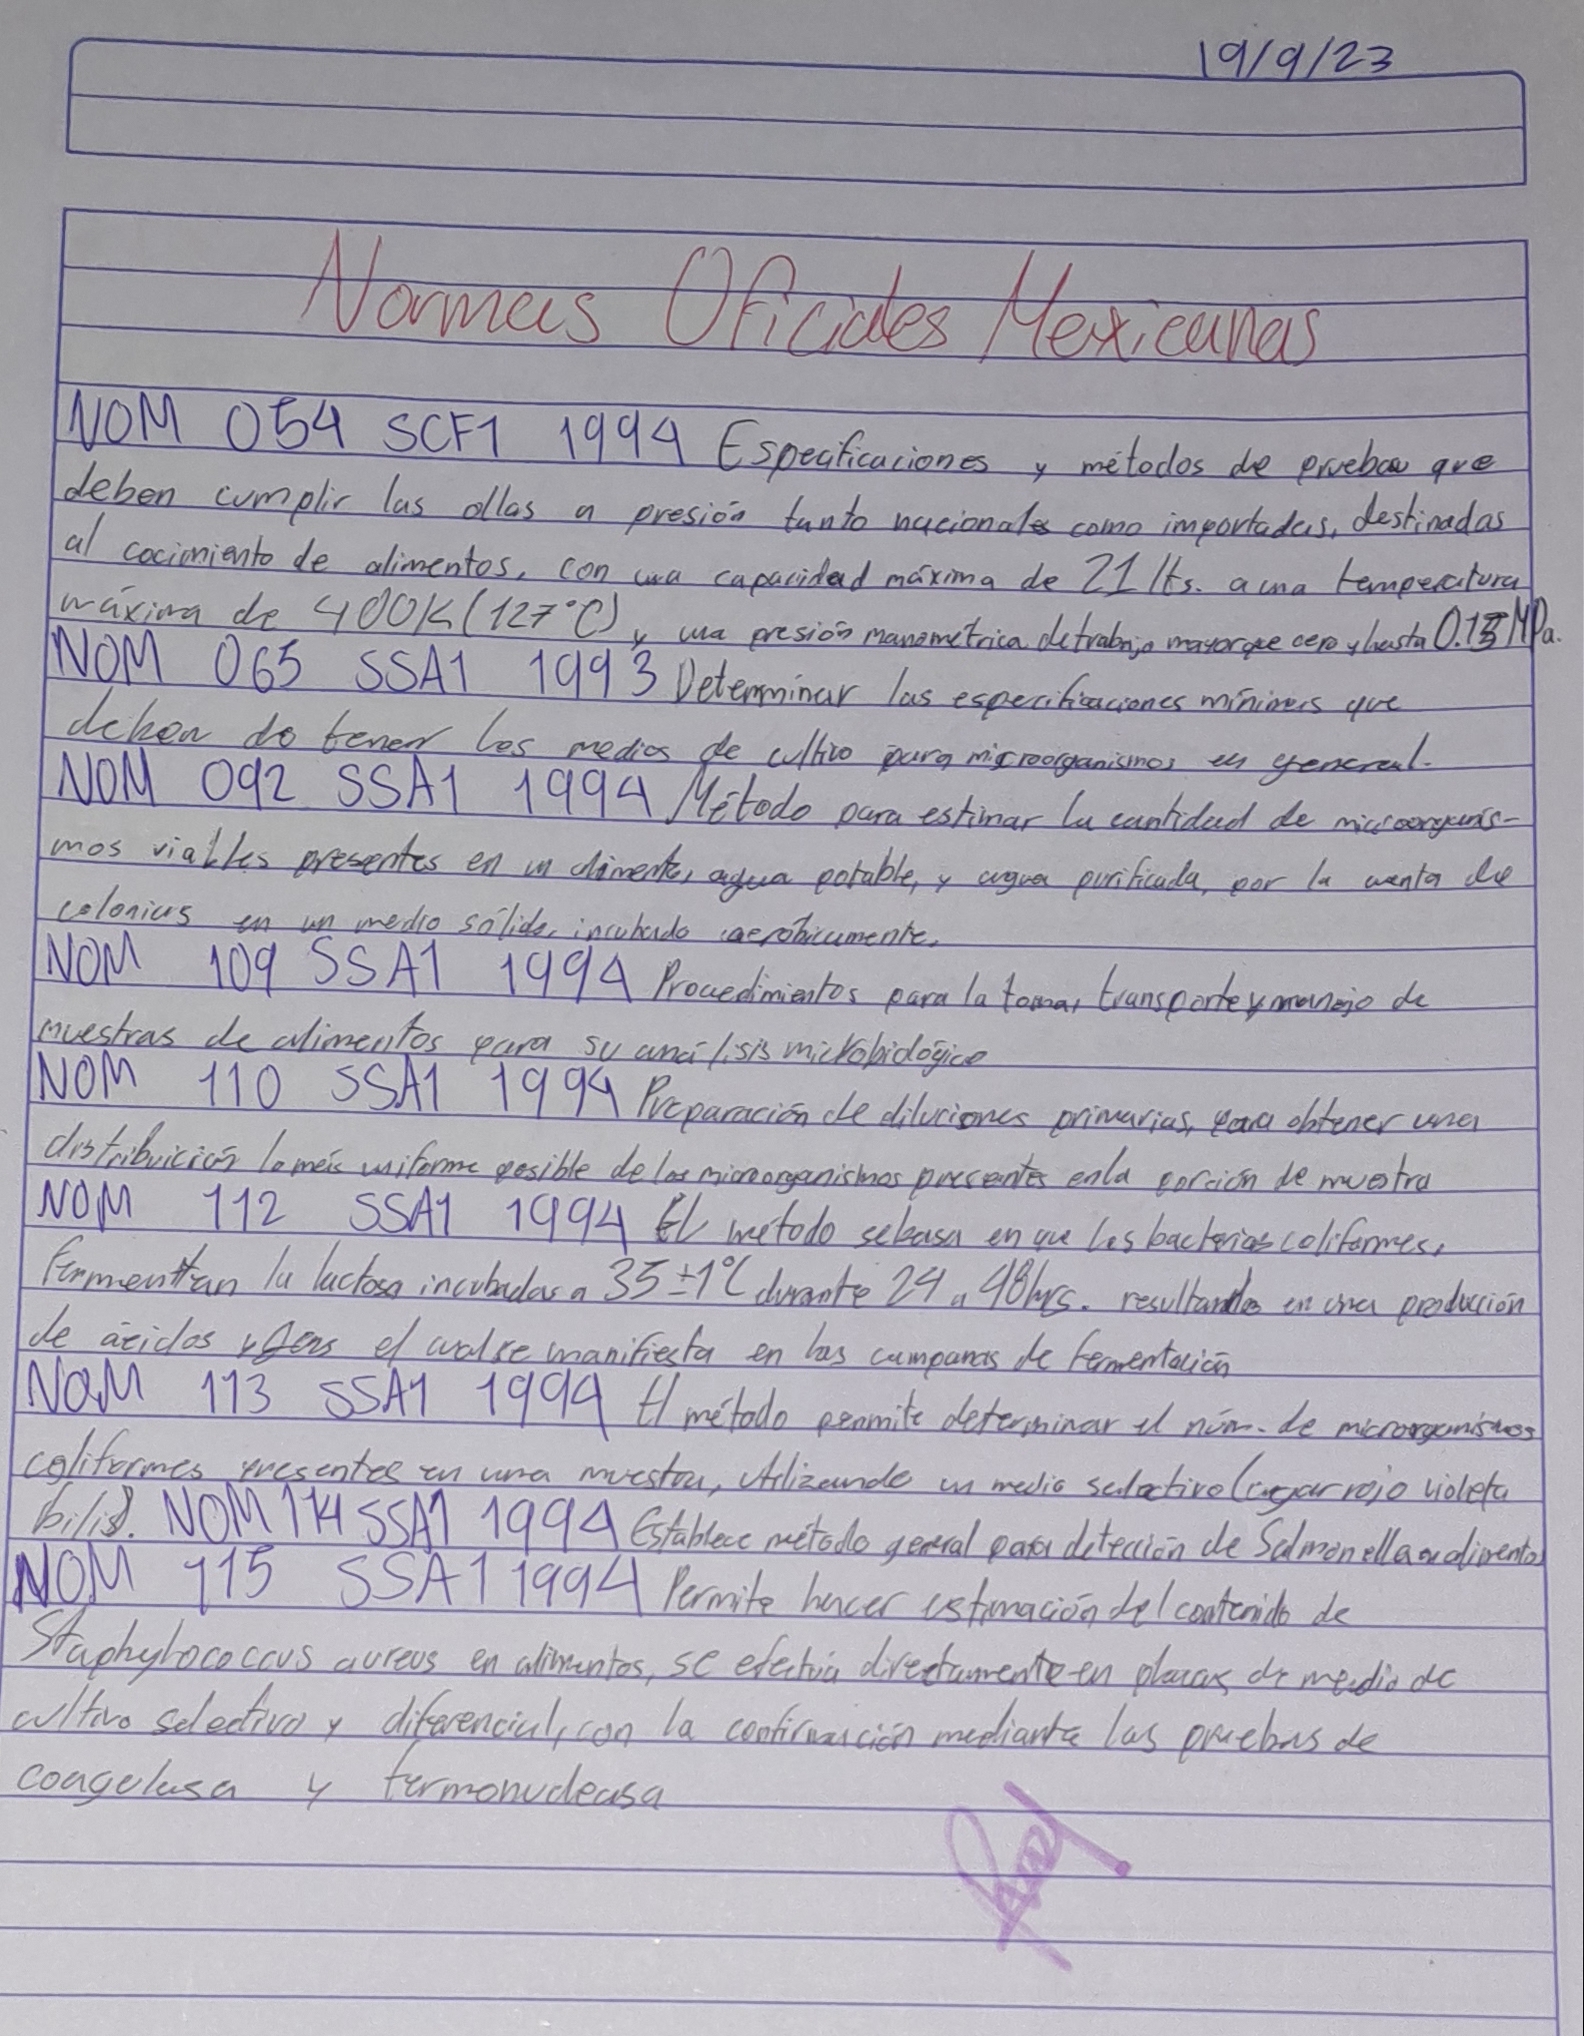 19/9/23
Normas Oficiales Mexicanas
NOM 054 SCFI 1994 Especificaciones y métodos de prueba que
deben cumplir las ollas a presión tanto nacionales como importadas, destinadas
al cocimiento de alimentos, con una capacidad máxima de 21 lts. a una temperatura
máxima de 400K (127°C) y una presión manométrica de trabajo mayor que cero y hasta MPa.
NOM 065 SSA1 1993 Determinar las especificaciones mínimas que
deben de tener los medios de cultivo para microorganismos en general.
NOM 092 SSA1 1994 Método para estimar la cantidad de microorganis-
mos viables presentes en un alimento, agua potable, y agua purificada, por la cuenta de
colonias en un medio sólido, incubado aeróbicamente.
NOM 109 SSA1 1994 Procedimientos para la toma, transporte y manejo de
muestras de alimentos para su análisis microbiológico
NOM 110 SSA1 1994 Preparación de diluciones primarias, para obtener una
distribuición lo más uniforme posible de los microorganismos presentes en la porción de muestra
NOM 112 SSA1 1994 El método se basa en que las bacterias coliformes,
fermentan la lactosa incubadas a 35 ±1°C durante 24 a 48 hrs. resultando en una producción
de ácidos y gas el cual se manifiesta en las campanas de fermentación
NOM 113 SSA1 1994 El método permite determinar el núm. de microorganismos
coliformes presentes en una muestra, utilizando un medio selectivo (agar rojo violeta
bilis). NOM 114 SSA1 1994 Establece método general para detección de Salmonella en alimentos
NOM 115 SSA1 1994 Permite hacer estimación del contenido de
Staphylococcus aureus en alimentos, se efectúa directamente en placas de medio de
cultivo selectivo y diferencial, con la confirmación mediante las pruebas de
coagulasa y termonucleasa